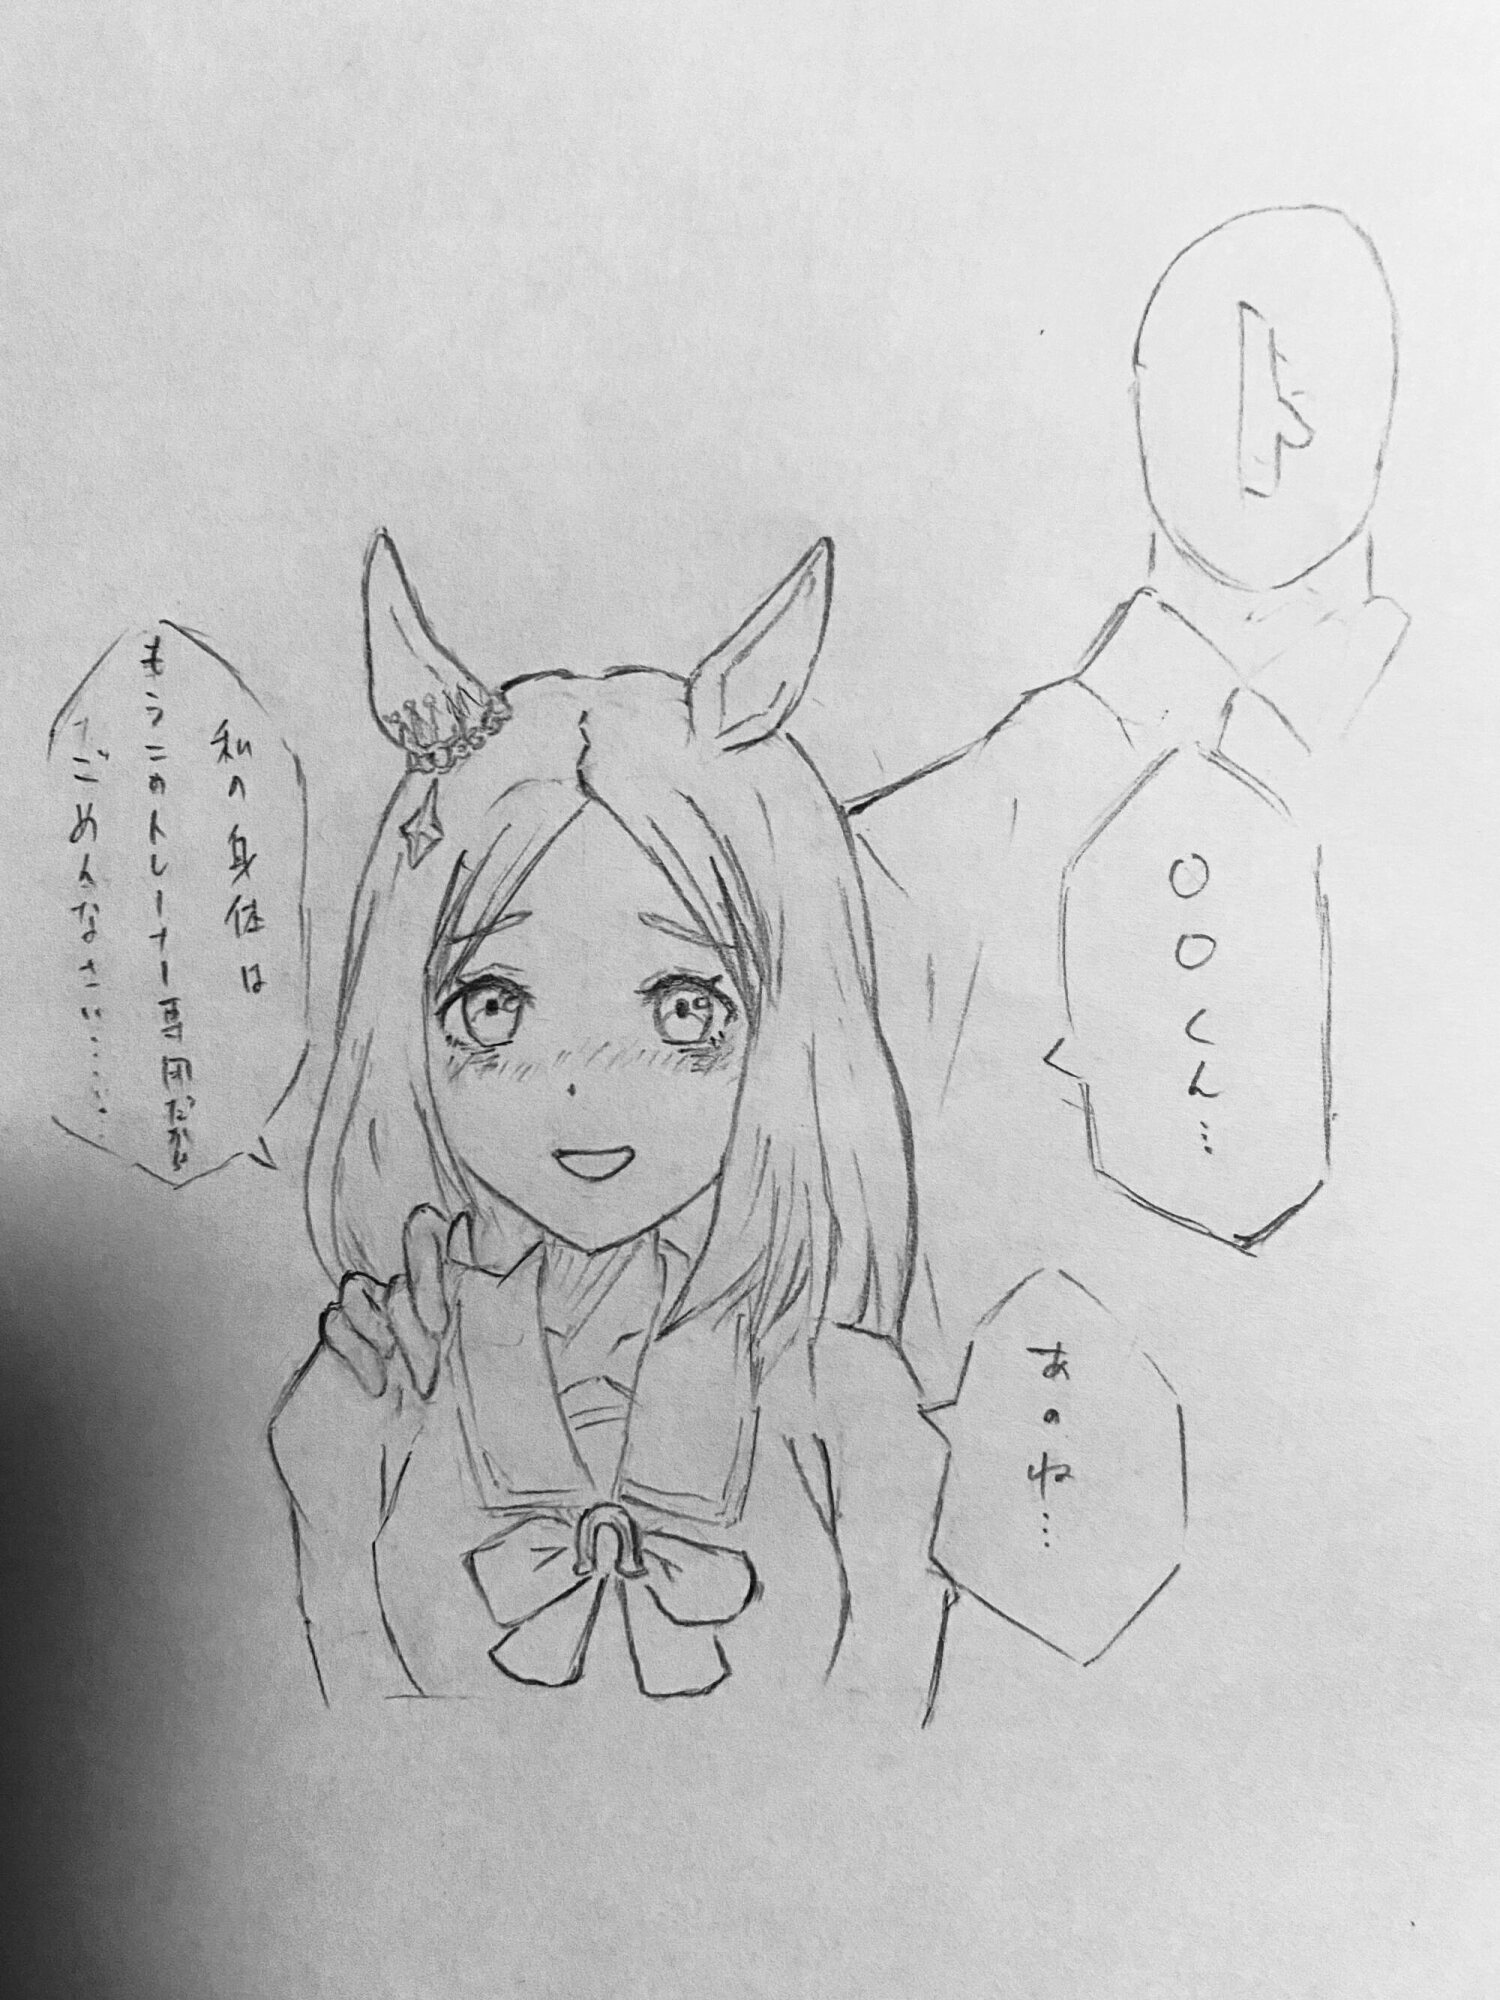 ト
○○くん…
あのね…
私の身体は
もうこのトレーナー専用だから
ごめんなさい……